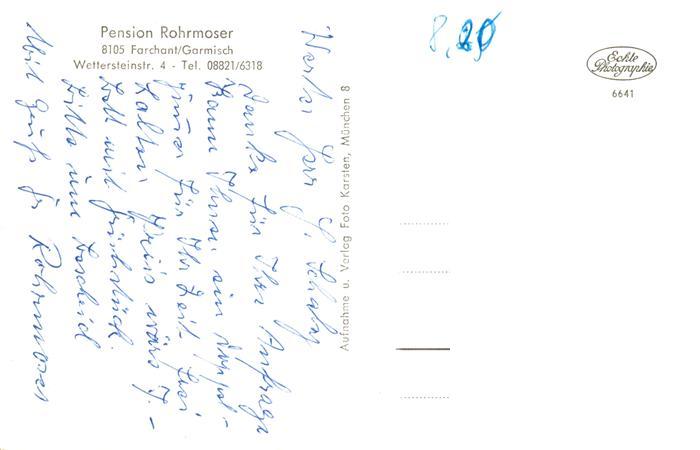 Pension Rohrmoser
8105 Farchant/Garmisch
Wettersteinstr. 4 - Tel. 08821/6318
8,20
Echte
Photographie
6641
Aufnahme u. Verlag Foto Karsten, München 8
Werter Herr
Danke für Ihre Anfrage
Kann Ihnen ein Doppel-
zimmer für Ihr Zeit frei
halten Preis wäre 7.-
Bett mit Frühstück.
Bitte um Bescheid
Mit Gruß Fr Rohrmoser